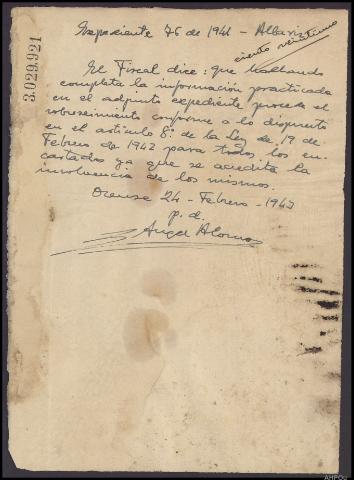 Expediente 76 de 1941 - Allariz
ciento veintiuno
3.029.921
El Fiscal dice: que hallando
completa la información practicada
en el adjunto expediente procede el
sobreseimiento conforme a lo dispuesto
en el artículo 8º de la Ley de 19 de
Febrero de 1942 para todos los en-
cartados ya que se acredita la
insolvencia de los mismos.
Orense 24 - Febrero - 1943
p. d.
Angel Alonso
AHPOu